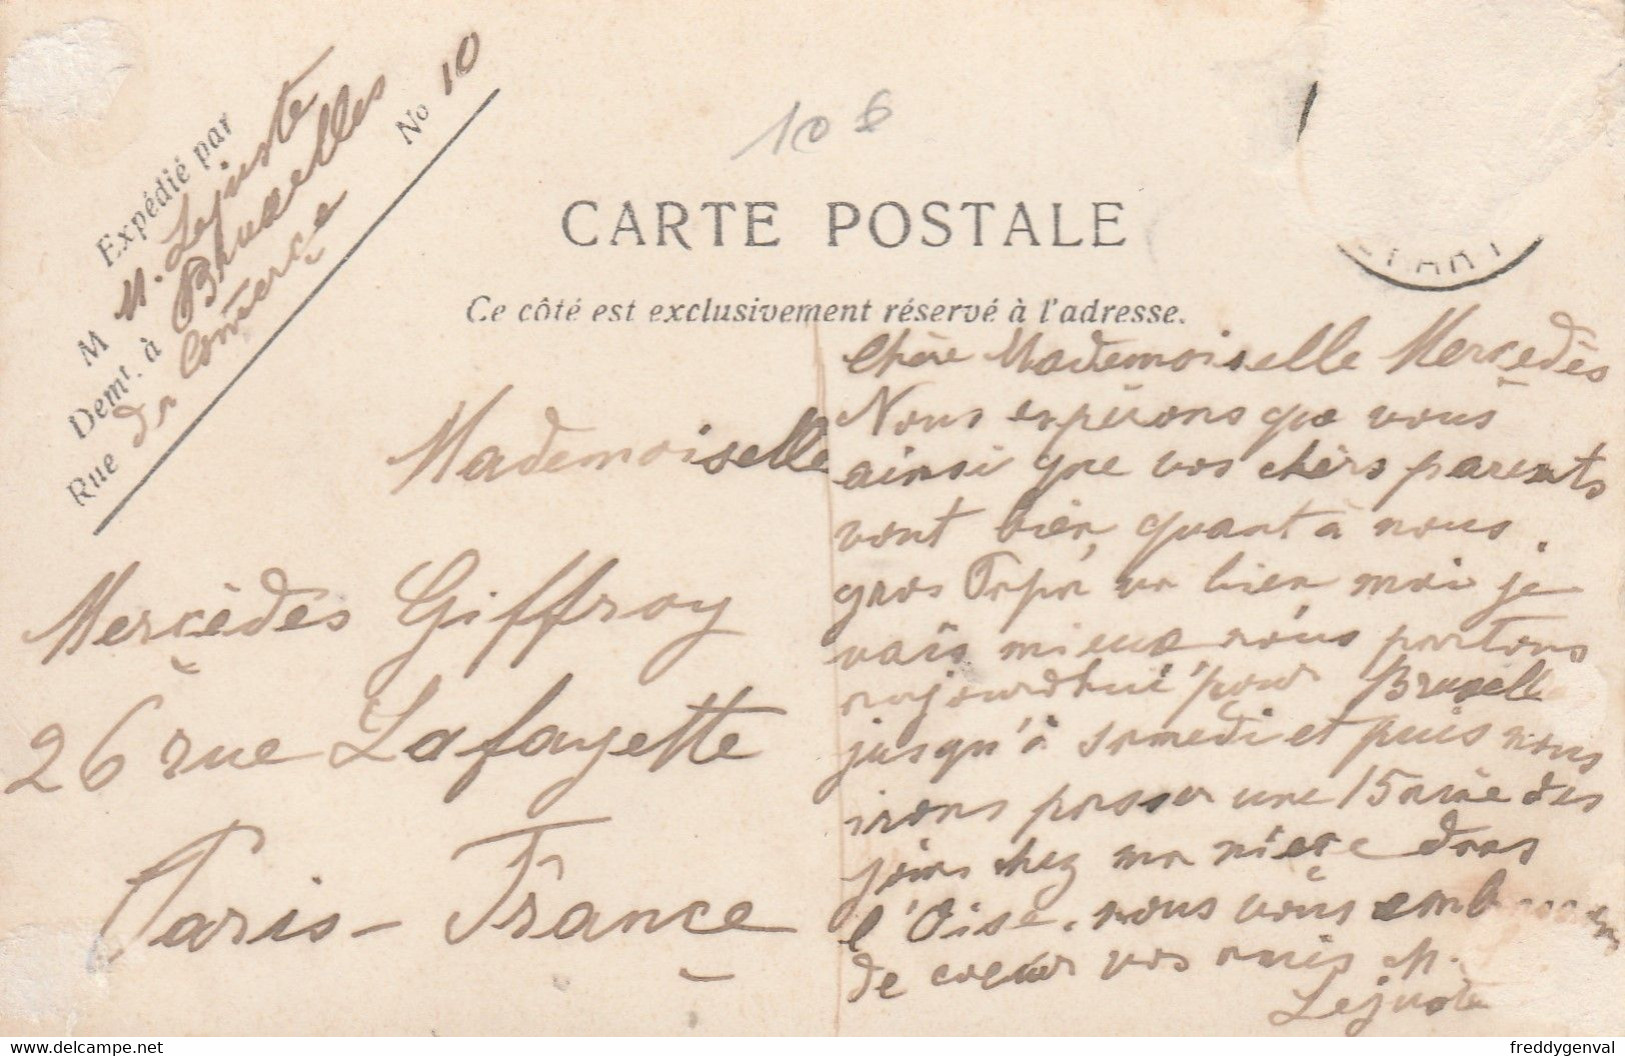 Expédié par
M M. Lejuste
Demt. à Bruxelles
Rue du Comerce No 10
10
CARTE POSTALE
Ce côté est exclusivement réservé à l'adresse.
Mademoiselle
Mercédès Giffroy
26 rue Lafayette
Paris - France
Chère Mademoiselle Mercedès
Nous espérons que vous
ainsi que vos chers parents
vont bien, quant à nous.
gros va bien moi je
vais mieux nous partons
aujourdhui pour Bruxelle
jusqu'à samedi et puis nous
irons passer une 15aine des
jours chez ma niece dans
l'Oise. nous vous embrassons
de coeur vos amis M.
Lejuste
www.delcampe.net
freddygenval